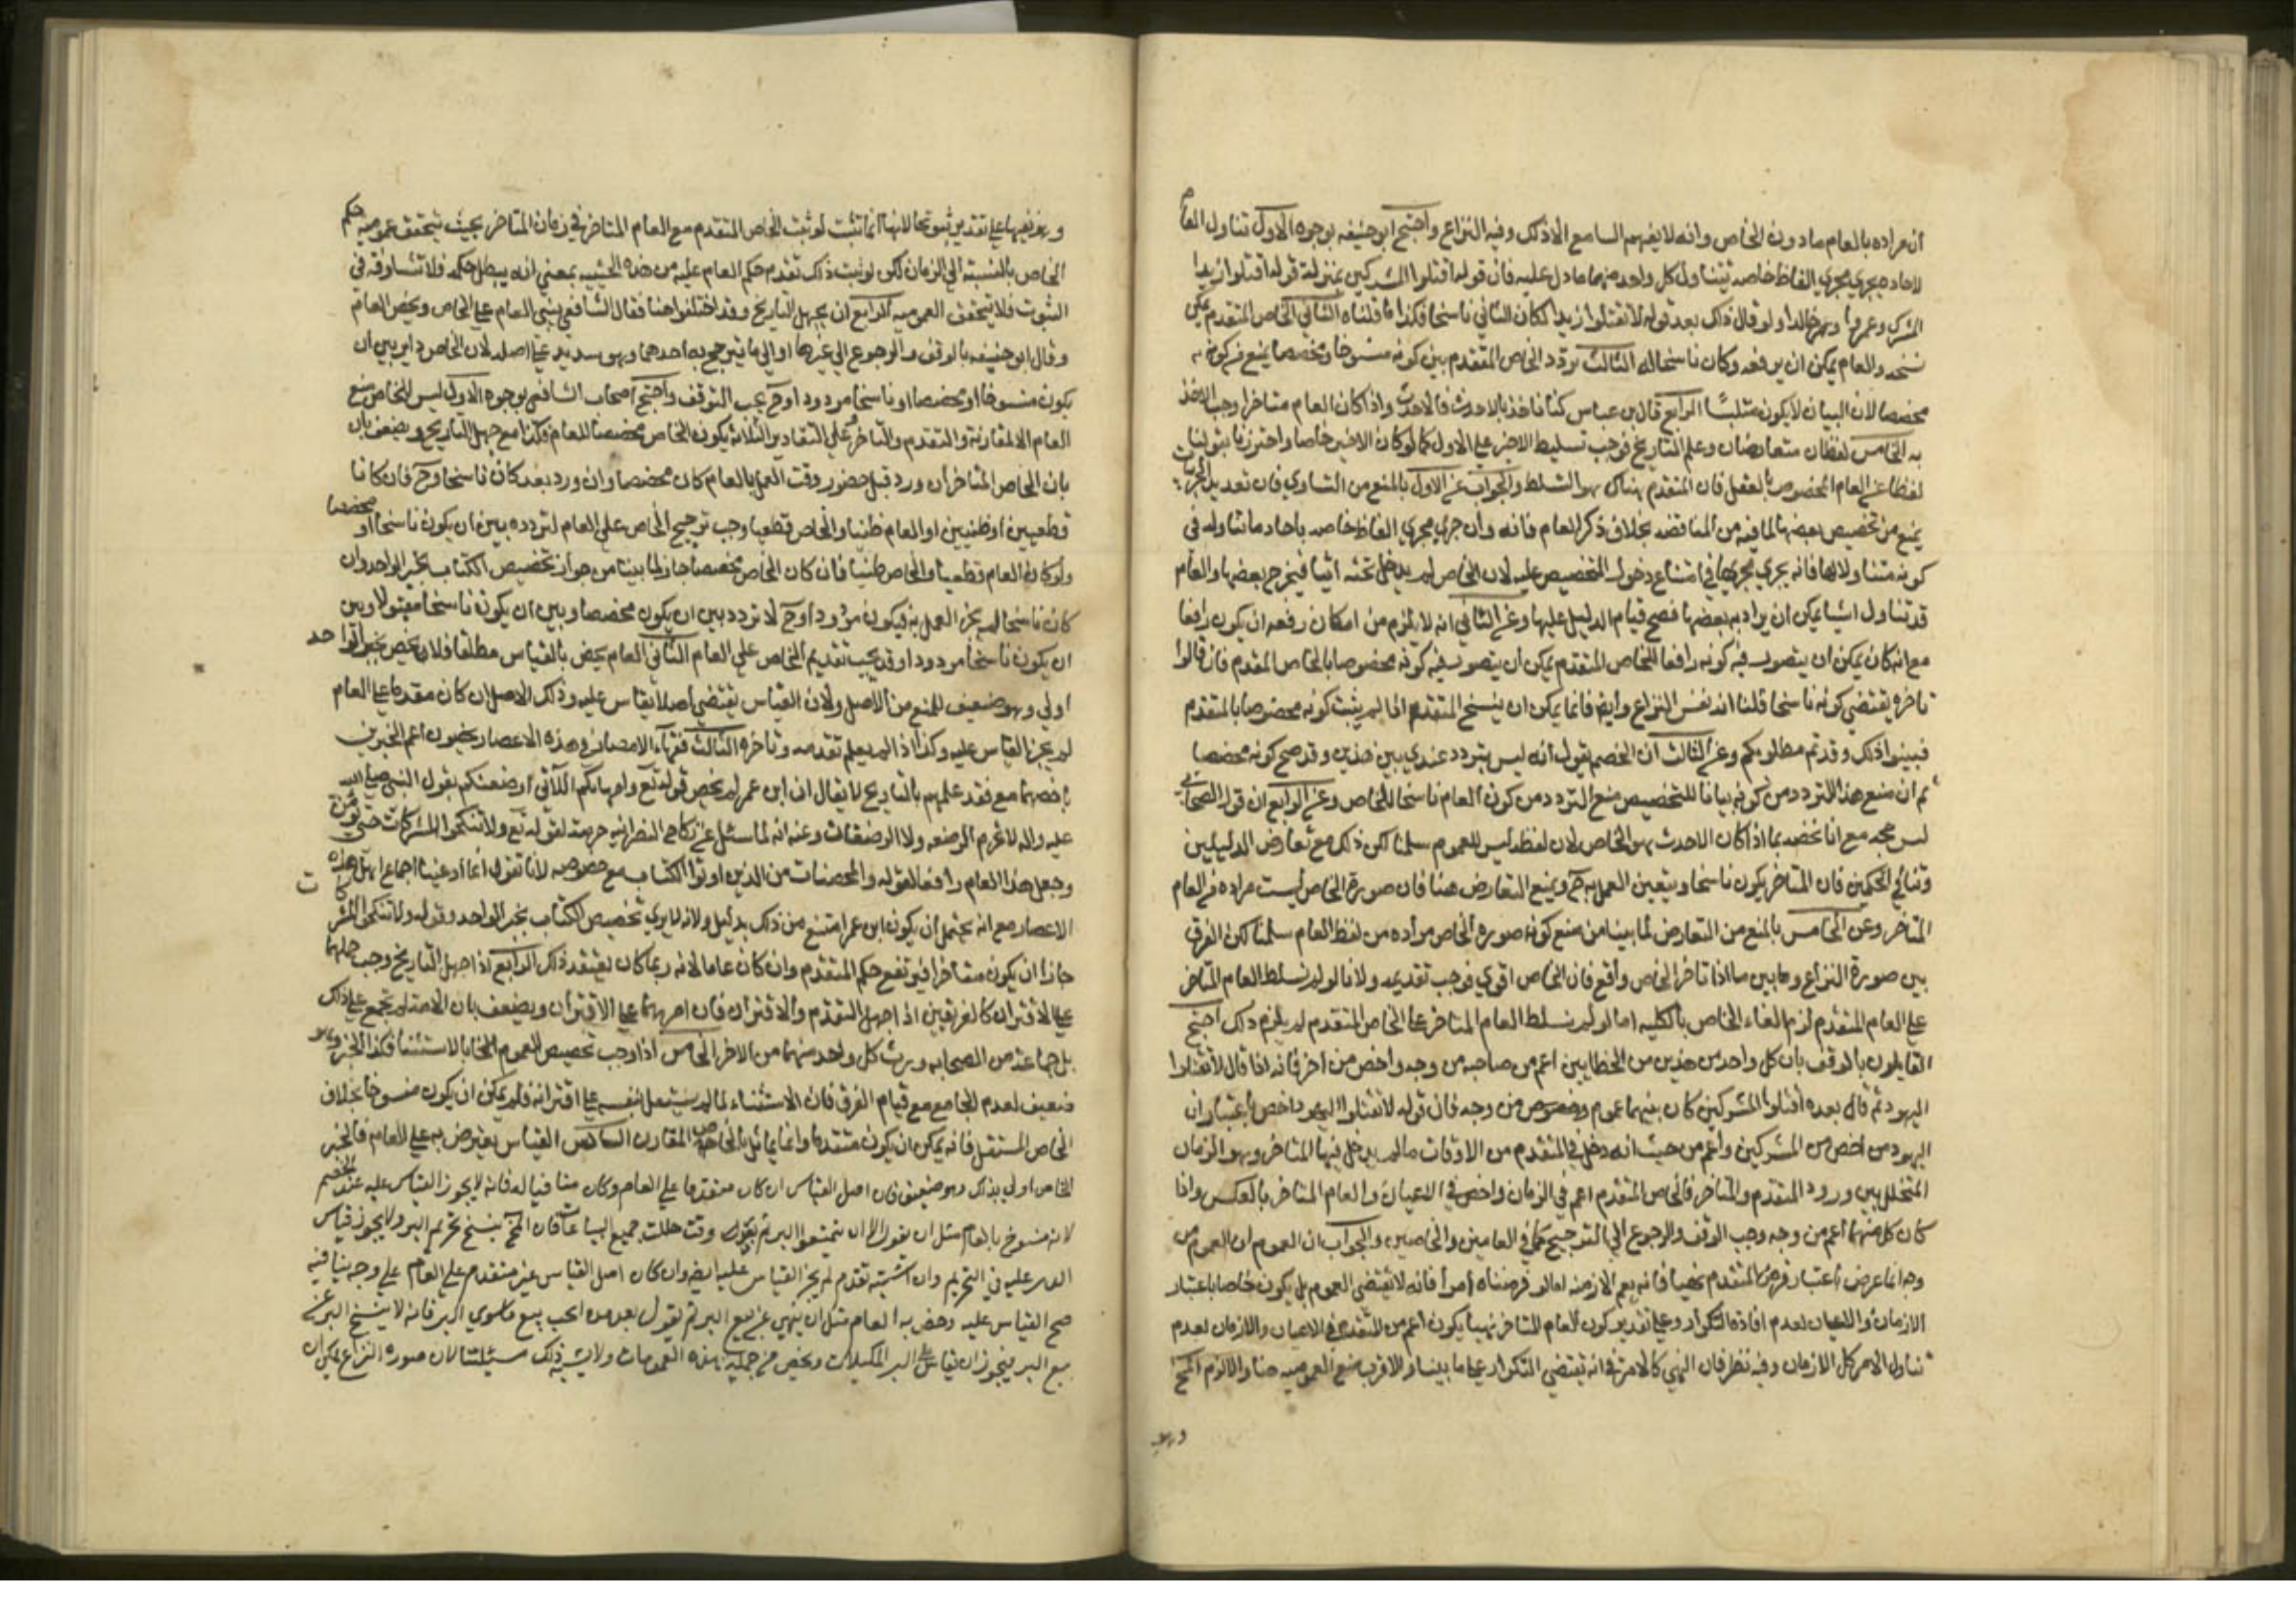 ان مراده بالعام ما دون الخاص وانه لا يفهم السامع الا ذلك وفيه النزاع واحتج ابو حنيفه بوجوه الاول تناول العام
لاحاده يجري مجري الفاظ خاصه يتناول كل واحد منهما ما دل عليه فان قوله اقتلوا المشركين بمنزلة قوله اقتلوا زيدا
المشرك وعمروا وخالدا ولو قال ذلك بعد قوله لا تقتلوا زيدا لكان الثاني ناسخا فكذا ما قلناه الثاني الخاص المتقدم يمكن
نسخه والعام يمكن ان يرفعه وكان ناسخا له الثالث تردد الخاص المتقدم بين كونه منسوخا ومخصصا يمنع من كونه
مخصصا لان البيان لا يكون ملتبسا الرابع قال ابن عباس كنا ناخذ بالاحدث فالاحدث واذا كان العام متاخرا وجب الاخذ
به الخامس لفظان متعارضان وعلم التاريخ فوجب تسليط الاخير علي الاول كما لو كان الاخير خاصا واحترزنا بقولنا
لفظا عن العام المخصوص بالعقل فان المتقدم هناك هو المتسلط والجواب عن الاول بالمنع من التساوي فان تعديد الجزئيات
يمنع من تخصيص بعضها لما فيه من المناقضه بخلاف ذكر العام فانه وان جري مجري الفاظ خاصه باحاد ما تناوله في
كونه متناولا لها فانه يجري مجريها في امتناع دخول التخصيص عليه لان الخاص لم يدخل تحته اشيا فيخرج بعضها والعام
قد تناول اشيا يمكن ان يراد به بعضها فصح قيام الدليل عليها وعن الثاني انه لا يلزم من امكان رفعه ان يكون رافعا
مع انه كان يمكن ان يتصور فيه كونه رافعا للخاص المتقدم يمكن ان يتصور فيه كونه مخصوصا بالخاص المقدم فان قالوا
تاخره يقتضي كونه ناسخا قلنا انه نفس النزاع وايضا فانما يمكن ان ينسخ المتقدم اذا لم يثبت كونه مخصوصا بالمتقدم
فبينوا ذلك وقد تم مطلوبكم وعن الثالث ان الخصم يقول انه ليس يتردد عندي بين هذين وقد صح كونه مخصصا
ثم ان منع هذا التردد من كونه بيانا للتخصيص منع التردد من كون العام ناسخا للخاص وعن الرابع ان قول الصحابي
ليس حجه مع انا نخصه بما اذا كان الاحدث هو الخاص لان لفظه ليس للعموم سلمنا لكن ذلك مع تعارض الدليلين
وتنافي الحكمين فان المتاخر يكون ناسخا ويتعين العمل به ح ويمنع التعارض هنا فان صورة الخاص ليست مراده من العام
المتاخر وعن الخامس بالمنع من التعارض لما بينا من منع كونه صوره الخاص مراده من لفظ العام سلمنا لكن الفرق
بين صورة النزاع وما بين ما اذا تاخر الخاص واقع فان الخاص اقوي فوجب تقديمه ولانا لو لم نسلط العام المتاخر
علي العام المتقدم لزم الغاء الخاص بالكليه اما لو لم نسلط العام المتاخر علي الخاص المتقدم لم يلزم ذلك احتج
القايلون بالوقف بان كل واحد من هذين من الخطابين اعم من صاحبه من وجه واخص من اخر فانه اذا قال لا تقتلوا
اليهود ثم قال بعده اقتلوا المشركين كان بينهما عموم وخصوص من وجه فان قوله لا تقتلوا اليهود اخص باعتبار ان
اليهود من اخص من المشركين واعم من حيث انه دخل في المتقدم من الاوقات ما لم يدخل فيها المتاخر وهو الزمان
المتخلل بين ورود المتقدم والمتاخر فالخاص المتقدم اعم في الزمان واخص في الاعيان والعام المتاخر بالعكس واذا
كان كل منهما اعم من وجه وجب الوقف والرجوع الي الترجيح كما في العامين والخاصين والجواب ان العموم من
وجه انما عرض باعتبار فرض المتقدم نهيا فانه يعم الازمنه اما لو فرضناه امرا فانه لا يقتضي العموم بل يكون خاصا باعتبار
الازمان والاعيان لعدم افادة التكرار وعلي تقدير كون العام المتاخر نهيا يكون اعم من المتقدم في الاعيان والازمان لعدم
تناول الامر كل الازمان وفيه نظر فان النهي كالامر في انه يقتضي التكرار علي ما بينا والاقرب منع العموميه هنا والالزم المح
وهو
وهو نفيها علي تقدير ثبوتها لانها انما تثبت لو ثبت الخاص المتقدم مع العام المتاخر في زمان المتاخر بحيث يتحقق عموميه حكم
الخاص بالنسبة الي الزمان لكن لو ثبت ذلك تقدم حكم العام عليه من هذه الحيثيه بمعني انه يبطل حكمه فلا تتساوقه في
الثبوت فلا يتحقق العموميه الرابع ان يجهل التاريخ وقد اختلفوا هنا فقال الشافعي يبني العام علي الخاص ويخص العام
وقال ابو حنيفه بالوقف والرجوع الي غيرها او الي ما يترجح به احدهما وهو سديد علي اصله لان الخاص داير بين ان
يكون منسوخا او مخصصا او ناسخا مردودا وح يجب التوقف واحتج اصحاب الشافعي بوجوه الاول ليس للخاص مع
العام الا المقارنة والتقدم والتاخر وعلي التقادير الثلاثة يكون الخاص مخصصا للعام فكذا مع جهل التاريخ ويضعف بان
بان الخاص المتاخر ان ورد قبل حضور وقت العمل بالعام كان مخصصا وان ورد بعده كان ناسخا وح فان كانا
قطعيين او ظنيين او العام ظنيا والخاص قطعيا وجب ترجيح الخاص علي العام لتردده بين ان يكون ناسخا او مخصصا
ولو كان العام قطعيا والخاص ظنيا فان كان الخاص مخصصا جاز لما بينا من جواز تخصيص الكتاب بخبر الواحد وان
كان ناسخا لم يجز العمل به فيكون مردودا وح لا تردد بين ان يكون مخصصا وبين ان يكون ناسخا مقبولا وبين
ان يكون ناسخا مردودا وقد يجب تقديم الخاص علي العام الثاني العام يخص بالقياس مطلقا فلان يخص بخبر الواحد
اولي وهو ضعيف للمنع من الاصل ولان القياس يقتضي اصلا يقاس عليه وذلك الاصل ان كان مقدما علي العام
لم يجز القياس عليه وكذا اذا لم يعلم تقدمه وتاخره الثالث فقهاء الامصار في هذه الاعصار يخصون اعم الخبرين
باخصهما مع فقد علمهم بالتاريخ لا يقال ان ابن عمر لم يخص قوله تع وامهاتكم اللاتي ارضعنكم بقول النبي صلي الله
عليه واله لا تحرم الرضعه ولا الرضعتان وعنه انه لما سئل عن نكاح النصرانيه حرمه لقوله تع ولا تنكحوا المشركات حتي يؤمن
وجعل هذا العام رافعا لقوله والمحصنات من الذين اوتوا الكتاب مع خصوصه لانا نقول انما ادعينا اجماع اهل هذه
الاعصار مع انه يحتمل ان يكون ابن عمر امتنع من ذلك بدليل ولانه لا يري تخصيص الكتاب بخبر الواحد وقوله ولا تنكحوا المشركات
جاز ان يكون متاخرا فيرتفع حكم المتقدم وان كان عاما لانه ربما كان يعتقد ذلك الرابع اذا جهل التاريخ وجب حملهما
علي الاقتران كالغريقين اذا جهل التقدم والاقتران فان امرهما علي الاقتران ويضعف بان الامة لم تجمع علي ذلك
بل جماعة من الصحابه ورث كل واحد منهما من الاخر الخامس اذا وجب تخصيص العموم بالاستثناء فكذا الخبر وهو
ضعيف لعدم الجامع مع قيام الفرق فان الاستثناء لما لم يستقل بنفسه علي اقترانه فلم يمكن ان يكون منسوخا بخلاف
الخاص المستقل فانه يمكن ان يكون متقدما وانما يماثل بالخاص المقارن السادس القياس يعترض به علي العام فالخبر
الخاص اولي بذلك وهو ضعيف فان اصل القياس ان كان متقدما علي العام وكان منافيا له فانه لا يجوز القياس عليه عند الخصم
لانه منسوخ بالعام مثل ان يقول وقت حللت جميع البياعات فان المح ينسخ تحريم البر ولا يجوز قياس
عليه في التحريم وان اشتبه تقدمه لم يجز القياس عليه ايضا وان كان اصل القياس غير متقدم علي العام علي وجه ينافيه
صح القياس عليه وخص به العام مثل ان ينهي عن بيع البر ثم يقول بعد مده ابحت بيع ما سوي البر فانه لا ينسخ البر عن
بيع البر فيجوز ان يقاس علي البر المكيلات ويخص من جملة هذه العمومات ولا يشبه ذلك مسئلتنا لان صوره النزاع يمكن ان